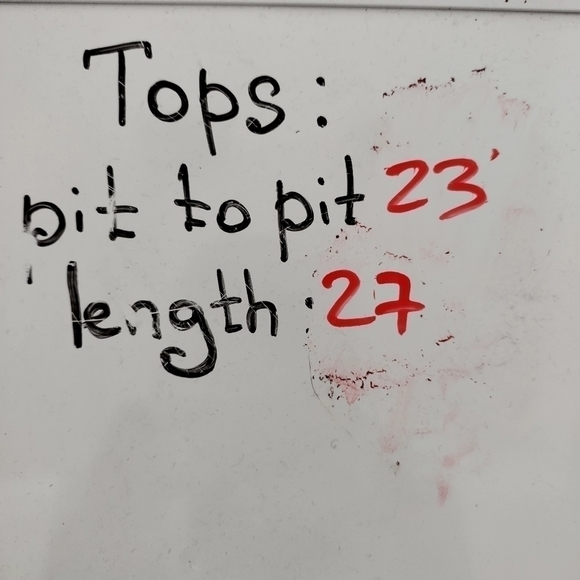 Tops:
pit to pit 23'
length: 27